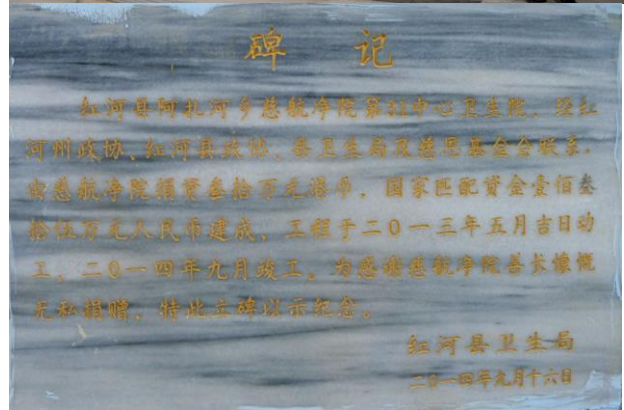 碑 记
红河县阿扎河乡慈航净院第22中心卫生院，经红
河州政协、红河县政协、县卫生局及慈恩基金会联系，
由慈航净院捐资叁拾万元港币，国家匹配资金壹佰叁
拾伍万元人民币建成，工程于二〇一三年五月吉日动
工，二〇一四年九月竣工。为感谢慈航净院善长慷慨
无私捐赠，特此立碑以示纪念。
红河县卫生局
二〇一四年九月十六日